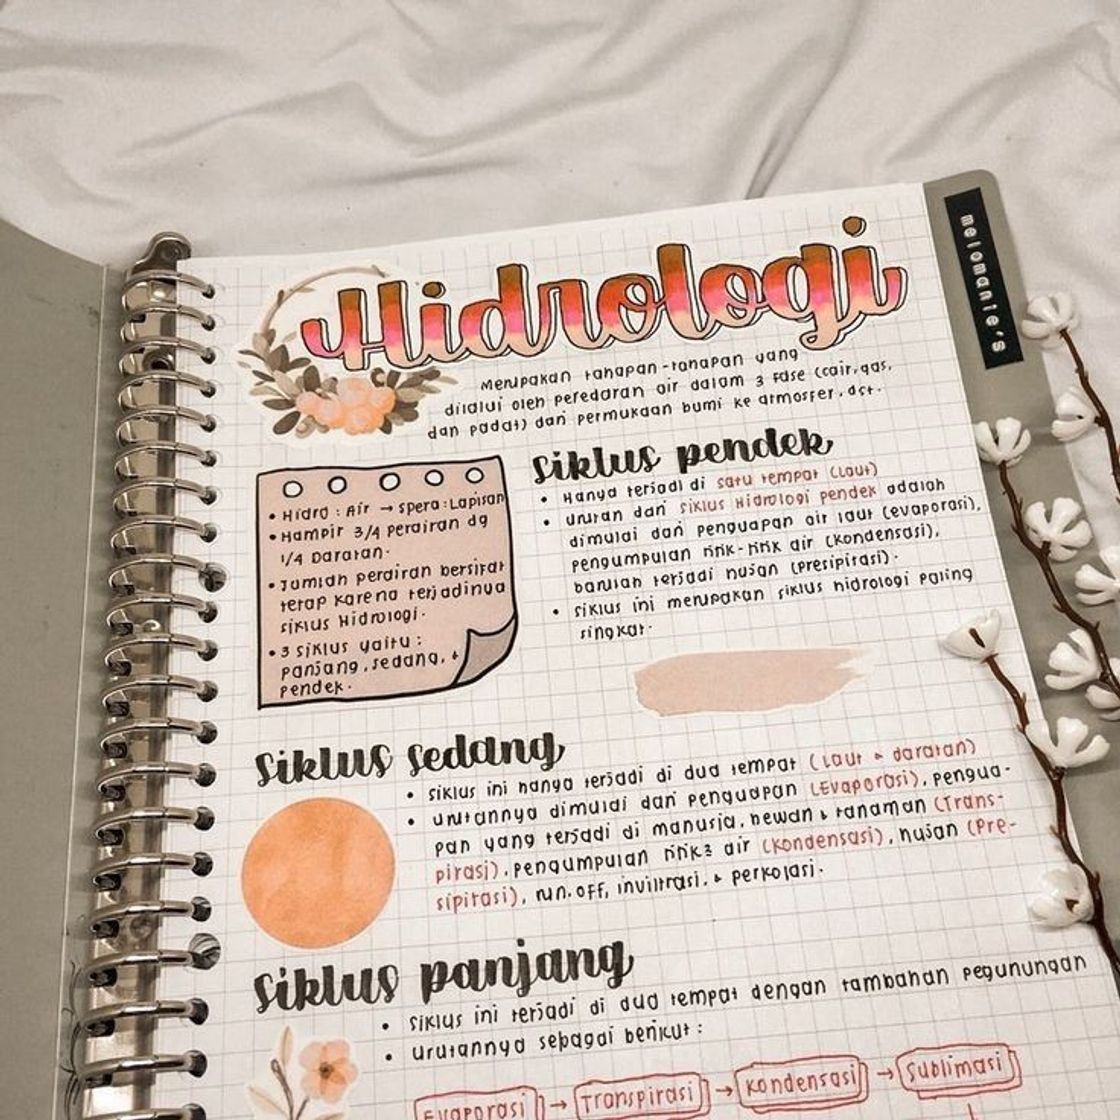 Hidrologi
melomanie's
Merupakan tahapan-tahapan yang
dilalui oleh peredaran air dalam 3 fase (cair, gas,
dan padat) dari permukaan bumi ke atmosfer, dst.
• Hidro : Air → spera : Lapisan
• Hampir 3/4 perairan dg
1/4 Daratan.
• Jumlah perairan bersifat
tetap karena terjadinya
siklus Hidrologi.
• 3 siklus yaitu :
panjang, sedang, &
pendek.
Siklus pendek
• Hanya terjadi di satu tempat (Laut)
• Urutan dari siklus Hidrologi pendek adalah
dimulai dari penguapan air laut (evaporasi),
pengumpulan titik-titik air (kondensasi),
barulah terjadi hujan (presipirasi).
• siklus ini merupakan siklus hidrologi paling
singkat.
Siklus sedang
• siklus ini hanya terjadi di dua tempat (Laut & daratan)
• Urutannya dimulai dari penguapan (Evaporasi), pengua-
pan yang terjadi di manusia, hewan & tanaman (Trans-
pirasi), pengumpulan titik2 air (kondensasi), hujan (Pre-
sipitasi), run-off, inviltrasi, & perkolasi.
Siklus panjang
• Siklus ini terjadi di dua tempat dengan tambahan pegunungan
• Urutannya sebagai berikut :
Evaporasi → Transpirasi → Kondensasi → Sublimasi